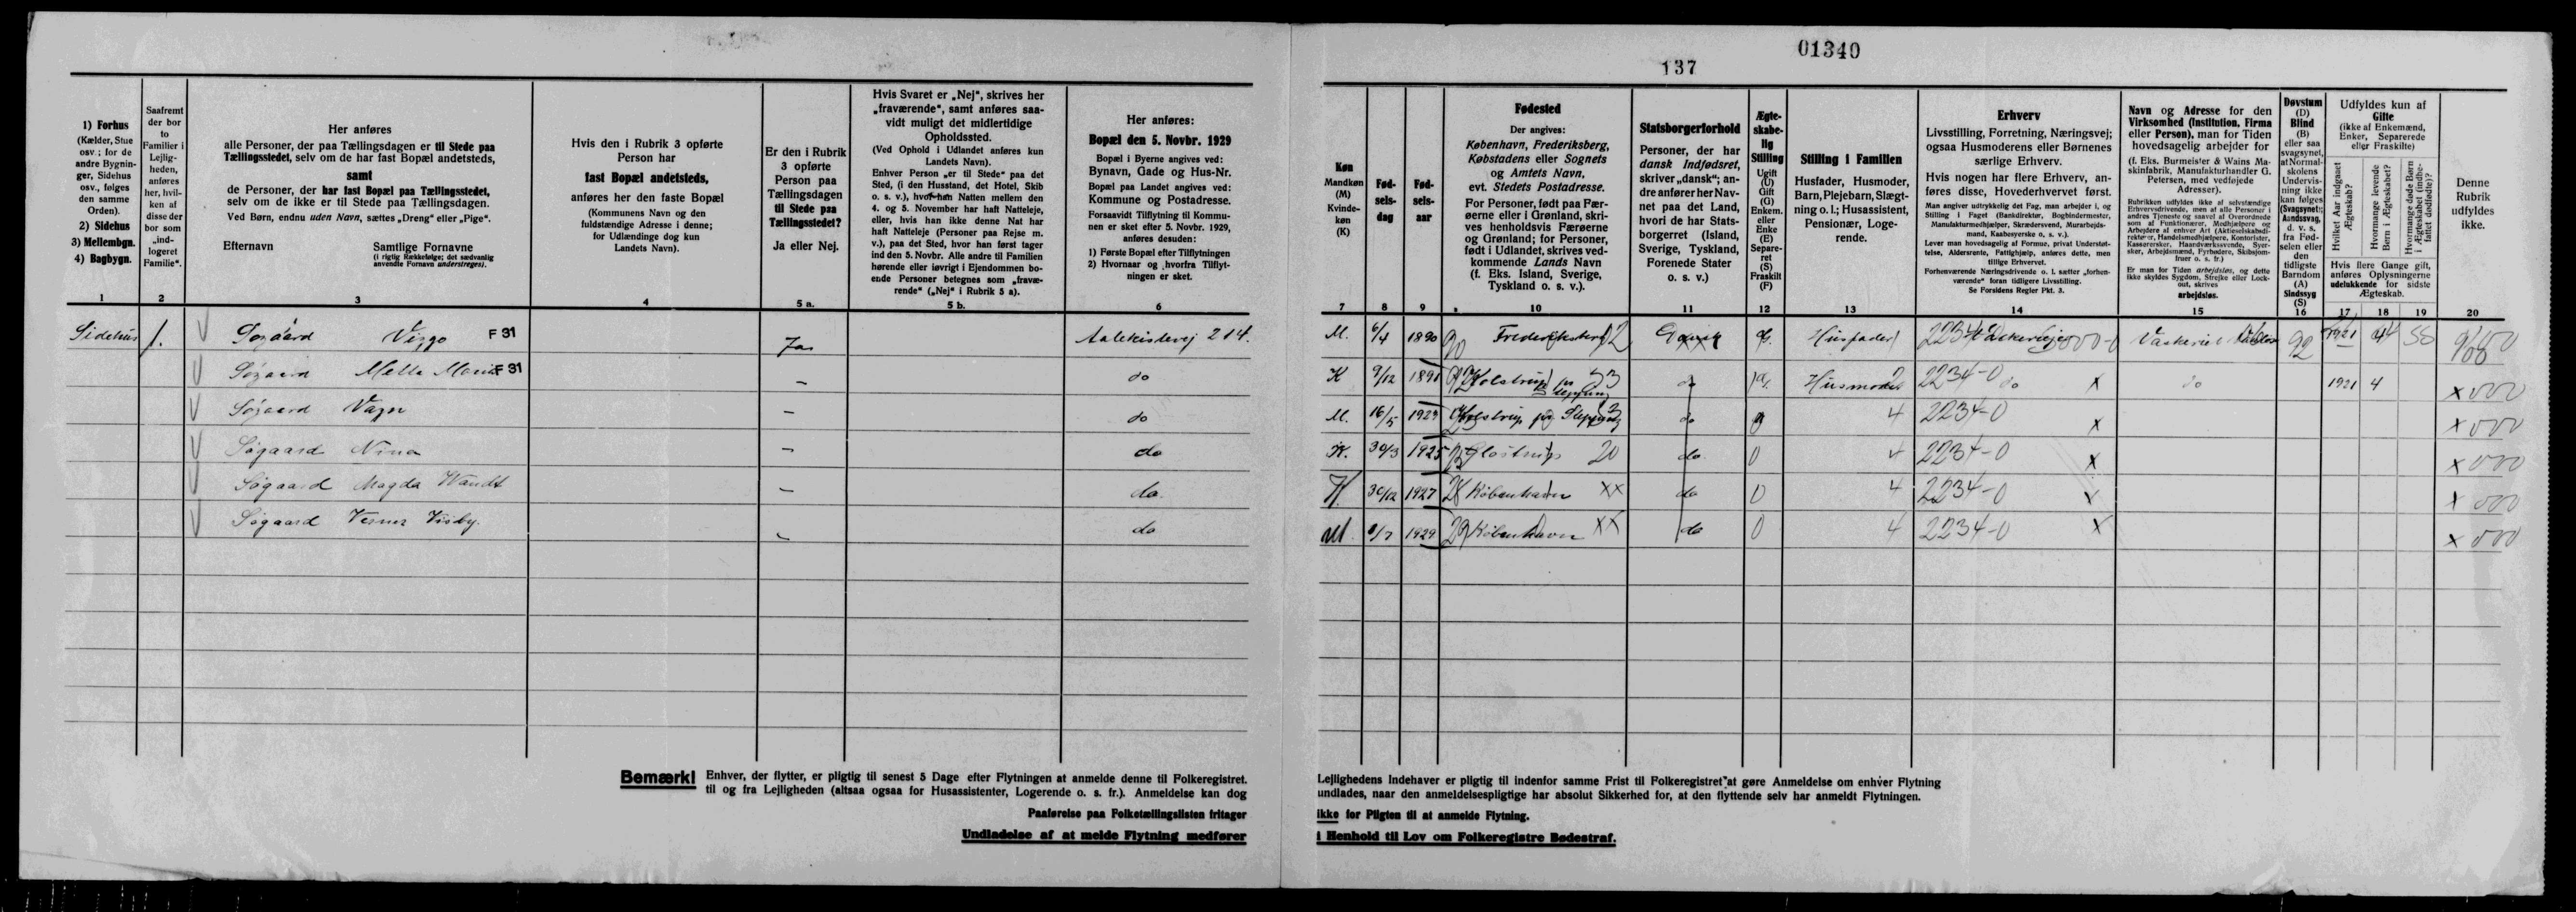 01340
137
1) Forhus
(Kælder, Stue
osv.; for de
andre Bygnin-
ger, Sidehus
osv., følges
den samme
Orden).
2) Sidehus
3) Mellembgn.
4) Bagbygn.
1
Saafremt
der bor
to
Familier i
Lejlig-
heden,
anføres
her, hvil-
ken af
disse der
bor som
„ind-
logeret
Familie".
2
Her anføres
alle Personer, der paa Tællingsdagen er til Stede paa
Tællingsstedet, selv om de har fast Bopæl andetsteds,
samt
de Personer, der har fast Bopæl paa Tællingsstedet,
selv om de ikke er til Stede paa Tællingsdagen.
Ved Børn, endnu uden Navn, sættes „Dreng" eller „Pige".
Efternavn Samtlige Fornavne
(i rigtig Rækkefølge; det sædvanlig
anvendte Fornavn understreges).
3
Hvis den i Rubrik 3 opførte
Person har
fast Bopæl andetsteds,
anføres her den faste Bopæl
(Kommunens Navn og den
fuldstændige Adresse i denne;
for Udlændinge dog kun
Landets Navn).
4
Er den i Rubrik
3 opførte
Person paa
Tællingsdagen
til Stede paa
Tællingsstedet?
Ja eller Nej.
5 a.
Hvis Svaret er „Nej", skrives her
„fraværende", samt anføres saa-
vidt muligt det midlertidige
Opholdssted.
(Ved Ophold i Udlandet anføres kun
Landets Navn).
Enhver Person „er til Stede" paa det
Sted, (i den Husstand, det Hotel, Skib
o. s. v.), hvor han Natten mellem den
4. og 5. November har haft Natteleje,
eller, hvis han ikke denne Nat har
haft Natteleje (Personer paa Rejse m.
v.), paa det Sted, hvor han først tager
ind den 5. Novbr. Alle andre til Familien
hørende eller iøvrigt i Ejendommen bo-
ende Personer betegnes som „fravæ-
rende" („Nej" i Rubrik 5 a).
5 b.
Her anføres:
Bopæl den 5. Novbr. 1929
Bopæl i Byerne angives ved:
Bynavn, Gade og Hus-Nr.
Bopæl paa Landet angives ved:
Kommune og Postadresse.
Forsaavidt Tilflytning til Kommu-
nen er sket efter 5. Novbr. 1929,
anføres desuden:
1) Første Bopæl efter Tilflytningen
2) Hvornaar og hvorfra Tilflyt-
ningen er sket.
6
Køn
Mandkøn
(M)
Kvinde-
køn
(K)
7
Fød-
sels-
dag
8
Fød-
sels-
aar
9
Fødested
Der angives:
København, Frederiksberg,
Købstadens eller Sognets
og Amtets Navn,
evt. Stedets Postadresse.
For Personer, født paa Fær-
øerne eller i Grønland, skri-
ves henholdsvis Færøerne
og Grønland; for Personer,
født i Udlandet, skrives ved-
kommende Lands Navn
(f. Eks. Island, Sverige,
Tyskland o. s. v.).
10
Statsborgerforhold
Personer, der har
dansk Indfødsret,
skriver „dansk"; an-
dre anfører her Nav-
net paa det Land,
hvori de har Stats-
borgerret (Island,
Sverige, Tyskland,
Forenede Stater
o. s. v.).
11
Ægte-
skabe-
lig
Stilling
Ugift
(U)
Gift
(G)
Enkem.
eller
Enke
(E)
Separe-
ret
(S)
Fraskilt
(F)
12
Stilling i Familien
Husfader, Husmoder,
Barn, Plejebarn, Slægt-
ning o. l.; Husassistent,
Pensionær, Loge-
rende.
13
Erhverv
Livsstilling, Forretning, Næringsvej;
ogsaa Husmoderens eller Børnenes
særlige Erhverv.
Hvis nogen har flere Erhverv, an-
føres disse, Hovederhvervet først.
Man angiver udtrykkelig det Fag, man arbejder i, og
Stilling i Faget (Bankdirektør, Bogbindermester,
Manufakturmedhjælper, Skræddersvend, Murarbejds-
mand, Kaabesyerske o. s. v.).
Lever man hovedsagelig af Formue, privat Understøt-
telse, Aldersrente, Fattighjælp, anføres dette, men
tillige Erhvervet.
Forhenværende Næringsdrivende o. l. sætter „forhen-
værende" foran tidligere Livsstilling.
Se Forsidens Regler Pkt. 3.
14
Navn og Adresse for den
Virksomhed (Institution, Firma
eller Person), man for Tiden
hovedsagelig arbejder for
(f. Eks. Burmeister & Wains Ma-
skinfabrik, Manufakturhandler G.
Petersen, med vedføjede
Adresser).
Rubrikken udfyldes ikke af selvstændige
Erhvervsdrivende, men af alle Personer i
andres Tjeneste og saavel af Overordnede
som af Funktionærer, Medhjælpere og
Arbejdere af enhver Art (Aktieselskabsdi-
rektører, Handelsmedhjælpere, Kontorister,
Kassererssker, Haandværkssvende, Syer-
sker, Arbejdsmænd, Fyrbødere, Skibsjom-
fruer o. s. fr.)
Er man for Tiden arbejdsløs, og dette
ikke skyldes Sygdom, Strejke eller Lock-
out, skrives
arbejdsløs.
15
Døvstum
(D)
Blind
(B)
eller saa
svagsynet,
at Normal-
skolens
Undervis-
ning ikke
kan følges
(Svagsynet);
Aandssvag,
d. v. s.
fra Fød-
selen eller
den
tidligste
Barndom
(A)
Sindssyg
(S)
16
Udfyldes kun af
Gifte
(ikke af Enkemænd,
Enker, Separerede
eller Fraskilte)
Hvilket Aar indgaaet
Ægteskab?
Hvormange levende
Børn i Ægteskabet?
Hvormange døde Børn
i Ægteskabet (indbe-
fattet dødfødte)?
Hvis flere Gange gift,
anføres Oplysningerne
udelukkende for sidste
Ægteskab.
17 18 19
Denne
Rubrik
udfyldes
ikke.
20
Sidehus 1. V Søgaard Viggo F 31 Ja Aalekistevej 214. M. 6/4 1890 90 Frederiksberg 12 Dansk g. Husfader 2234 92 1921 4
V Søgaard Mette Marie F 31 – do K 9/12 1891 Kolstrup 33 do g. Husmoder 2 2234-0 do X do 1921 4 x000
V Søgaard Vagn – do M. 16/5 do 4 2234-0 X x000
V Søgaard Nina – do K. 30/3 1925 Glostrup 20 do. U 4 2234-0 X x000
V Søgaard Magda Wandt – do. K. 30/12 1927 København XX do U 4 2234-0 X x000
V Søgaard Verner Visby. – do M. 1929 29 København XX do U 4 2234-0 X x000
Bemærk! Enhver, der flytter, er pligtig til senest 5 Dage efter Flytningen at anmelde denne til Folkeregistret.
til og fra Lejligheden (altsaa ogsaa for Husassistenter, Logerende o. s. fr.). Anmeldelse kan dog
Paaførelse paa Folketællingslisten fritager
Undladelse af at melde Flytning medfører
Lejlighedens Indehaver er pligtig til indenfor samme Frist til Folkeregistret at gøre Anmeldelse om enhver Flytning
undlades, naar den anmeldelsespligtige har absolut Sikkerhed for, at den flyttende selv har anmeldt Flytningen.
ikke for Pligten til at anmelde Flytning.
i Henhold til Lov om Folkeregistre Bødestraf.